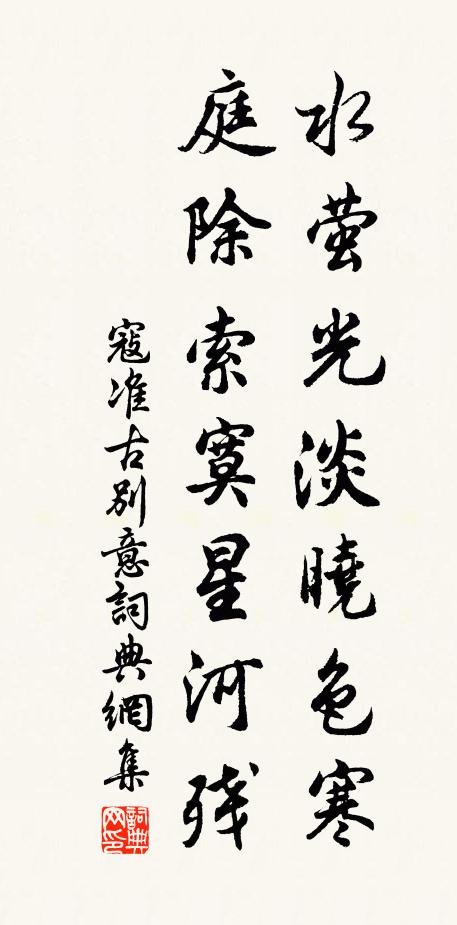 水萤光淡曉色寒
庭除索寞星河残
寇准古别意詞典網集
詞典网印